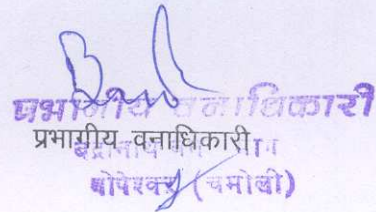 प्रभागीय वनाधिकारी
प्रभागीय वनाधिकारी
बद्रीनाथ वन प्रभाग
गोपेश्वर (चमोली)